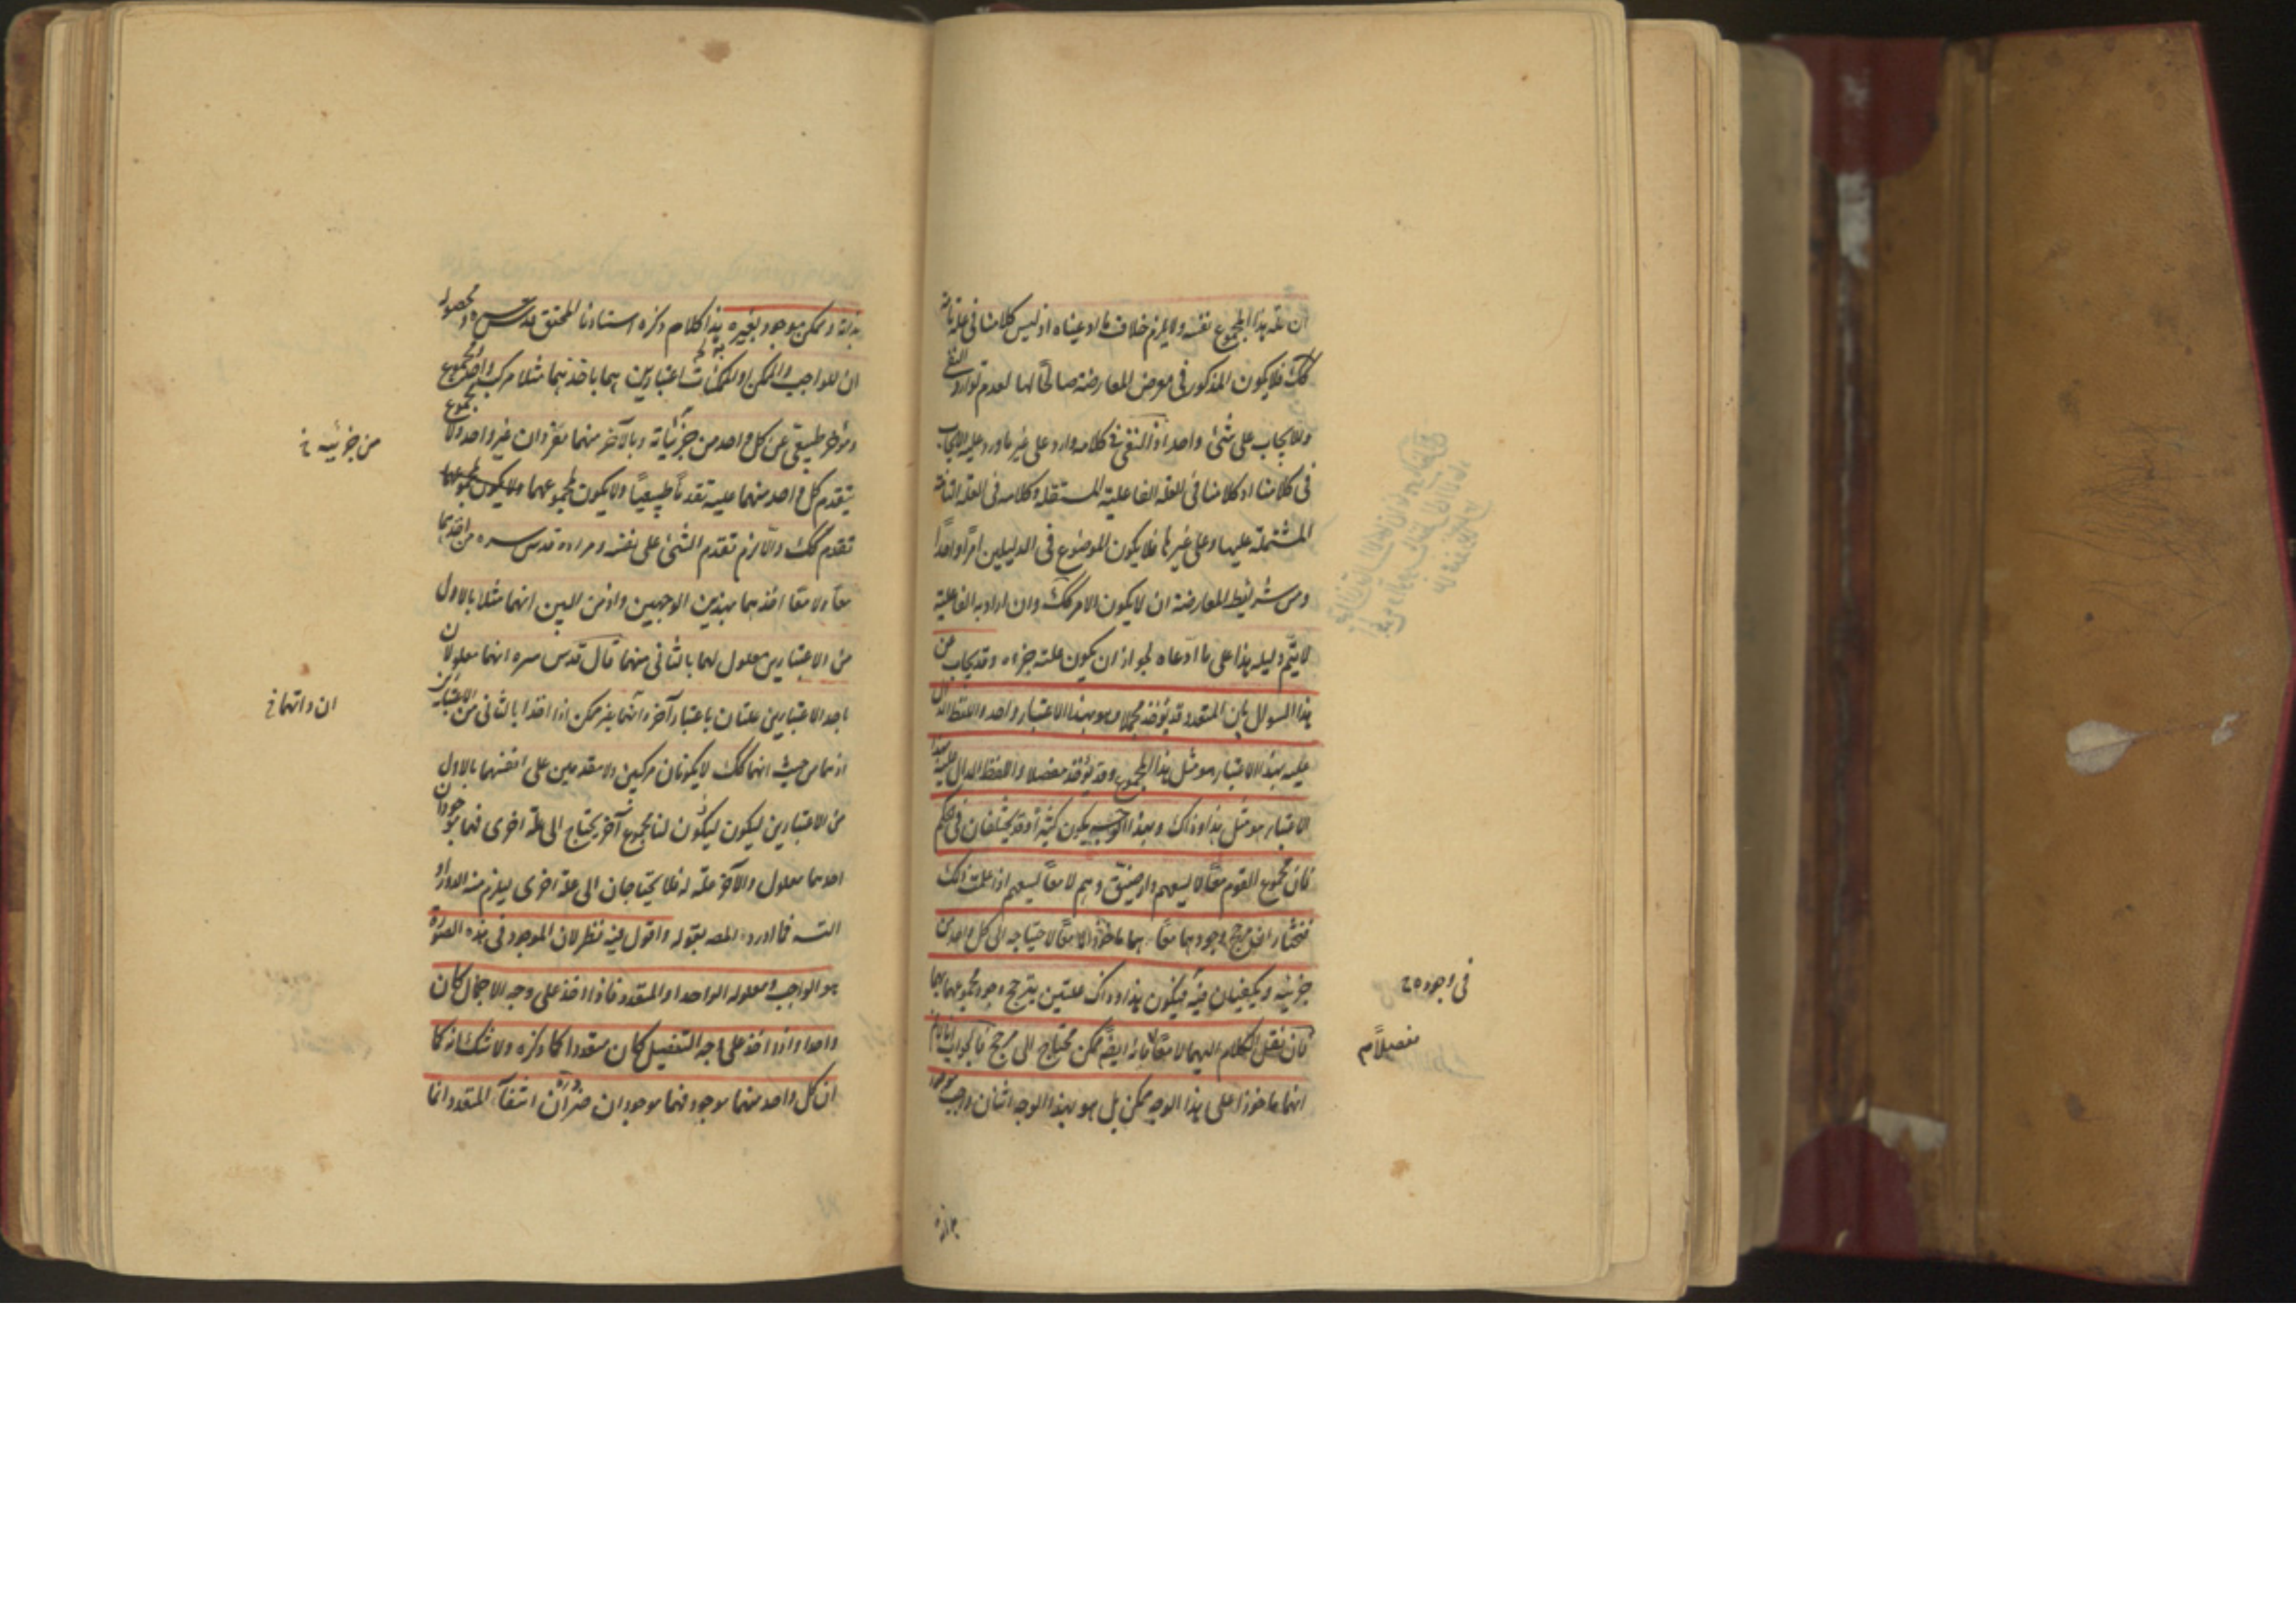 ان علة هذا المجموع نفسه ولا يلزم خلاف ما ادعيناه اذ ليس كلامنا في علة تامة
كك فلا يكون المذكور في معرض المعارضة صالحا لها لعدم توارد النفي
والايجاب على شئ واحد اذ النفي في كلامه وارد على غير ما ورد عليه الايجاب
في كلامنا اذ كلامنا في العلة الفاعلية المستقلة وكلامه في العلة التامة
المشتملة عليها وعلى غيرها فلا يكون الموضوع في الدليلين امرا واحدا
ومن شرايط المعارضة ان لا يكون الامر كك وان اراد به الفاعلية
لا يتم دليله هذا على ما ادعاه لجواز ان يكون علته جزءه وقد يجاب من
هذا السوال بان المتعدد قد يؤخذ مجملا وهو بهذا الاعتبار واحد واللفظ الدال
عليه بهذا الاعتبار هو مثل هذا المجموع وقد يؤخذ مفصلا واللفظ الدال عليه بهذا
الاعتبار هو مثل هذا وذاك وبهذا الوجه يكون كثيرا وقد يختلفان في حكم
فان مجموع القوم معا لا يسعهم دار ضيق وهم لا معا يسعهم اذ علمت ذلك
فنختار ان مرجح وجودهما معا هما ماخوذا لا معا لاحتياجه الى كل واحد من
جزئيه ويكفيان فيه فيكون هذا وذاك علتين يترجح وجود مجموعهما بهما
فان نقل الكلام اليهما لا معا فانه ايضا ممكن محتاج الى مرجح فالجواب انا لانم
انهما ماخوذا على هذا الوجه ممكن بل هو بهذا الوجه اثنان واجب موجود
في وجوده ح
مفصلا م
بذاته
بذاته وممكن موجود بغيره هذا كلام ذكره استادنا المحقق قدس سره ومحصوله
ان للواجب والممكن او للممكنات اعتبارين هما باخذهما مثلا مركب واحد مجموع
ومؤخر طبيعي عن كل واحد من جزئياته وبالآخر منهما مفردان غير واحد ولا مجموع
يتقدم كل واحد منهما عليه تقدما طبيعيا ولا يكون لمجموعهما
تقدم كك والا لزم تقدم الشئ على نفسه ومراده قدس سره من اخذهما
معا ولا معا اخذهما بهذين الوجهين واذ من البين انهما مثلا بالاول
من الاعتبارين معلول لهما بالثاني منهما قال قدس سره انهما معلولان
باحد الاعتبارين علتان باعتبار آخر وانهما غير ممكن اذا اخذا بالثاني من الاعتبارين
اذ هما من حيث انهما كك لا يكونان مركبين ولا متقدمين على انفسهما بالاول
من الاعتبارين ليكون ليكون لنا مجموع آخر يحتاج الى علة اخرى فهما موجودان
احدهما معلول والآخر علة له فلا يحتاجان الى علة اخرى ليلزم منه الدور او
التسـ فما اورده المصـ بقوله واقول فيه نظر لان الموجود في هذه الصورة
هو الواجب ومعلوله الواحد او المتعدد فاذا اخذ على وجه الاجمال كان
واحدا واذا اخذ على وجه التفصيل كان متعددا كما ذكره ولا شك انه كما
ان كل واحد منهما موجود فهما موجودان ضرورة ان انتفاء المتعدد انما
من جزئيه خ
ان وانهما خ